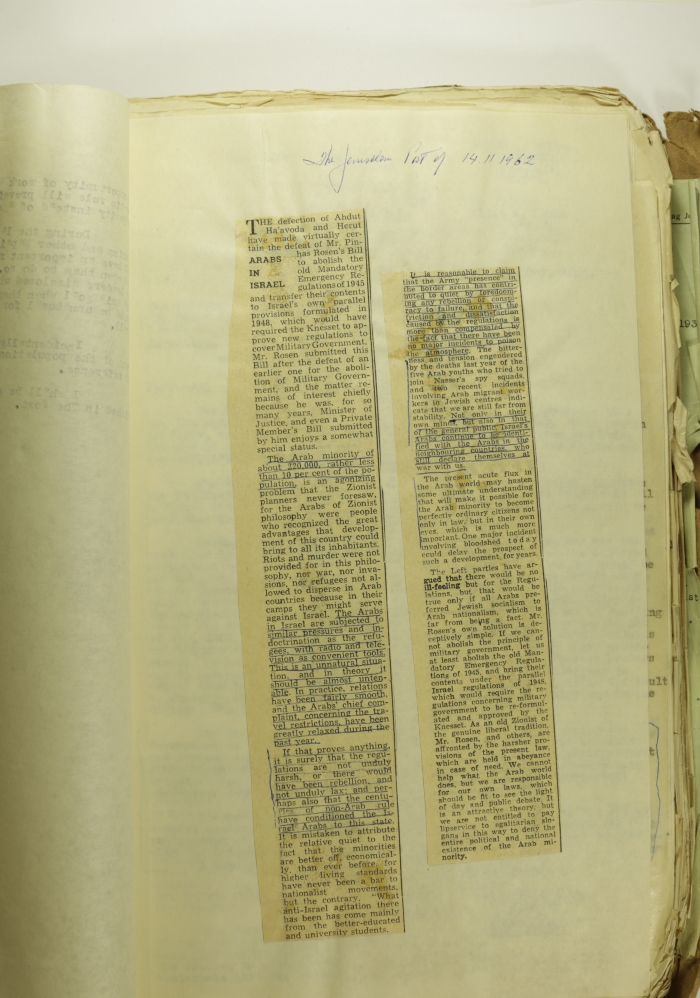 The Jerusalem Post of 14.11 1962
THE defection of Ahdut
Ha'avoda and Herut
have made virtually cer-
tain the defeat of Mr. Pin-
has Rosen's Bill
ARABS
IN
ISRAEL
to abolish the
old Mandatory
Emergency Re-
gulations of 1945
and transfer their contents
to Israel's own parallel
provisions formulated in
1948, which would have
required the Knesset to ap-
prove new regulations to
cover Military Government.
Mr. Rosen submitted this
Bill after the defeat of an
earlier one for the aboli-
tion of Military Govern-
ment, and the matter re-
mains of interest chiefly
because he was, for so
many years, Minister of
Justice, and even a Private
Member's Bill submitted
by him enjoys a somewhat
special status.
The Arab minority of
about 220,000, rather less
than 10 per cent of the po-
pulation, is an agonizing
problem that the Zionist
planners never foresaw,
for the Arabs of Zionist
philosophy were people
who recognized the great
advantages that develop-
ment of this country could
bring to all its inhabitants.
Riots and murder were not
provided for in this philo-
sophy, nor war, nor inva-
sions, nor refugees not al-
lowed to disperse in Arab
countries because in their
camps they might serve
against Israel. The Arabs
in Israel are subjected to
similar pressures and in-
doctrination as the refu-
gees, with radio and tele-
vision as convenient tools.
This is an unnatural situa-
tion, and in theory it
should be almost unten-
able. In practice, relations
have been fairly smooth,
and the Arabs' chief com-
plaint, concerning the tra-
vel restrictions, have been
greatly relaxed during the
past year.
If that proves anything,
it is surely that the regu-
lations are not unduly
harsh, or there would
have been rebellion, and
not unduly lax; and per-
haps also that the centu-
ries of non-Arab rule
have conditioned the Is-
rael Arabs to this state.
It is mistaken to attribute
the relative quiet to the
fact that the minorities
are better off, economical-
ly, than ever before, for
higher living standards
have never been a bar to
nationalist movements,
but the contrary. What
anti-Israel agitation there
has been has come mainly
from the better-educated
and university students.
It is reasonable to claim
that the Army "presence" in
the border areas has contri-
buted to quiet by foredoom-
ing any rebellion or conspi-
racy to failure, and that the
friction and dissatisfaction
caused by the regulations is
more than compensated by
the fact that there have been
no major incidents to poison
the atmosphere. The bitter-
ness and tension engendered
by the deaths last year of the
five Arab youths who tried to
join Nasser's spy squads,
and two recent incidents
involving Arab migrant wor-
kers in Jewish centres indi-
cate that we are still far from
stability. Not only in their
own minds, but also in that
of the general public, Israel's
Arabs continue to be identi-
fied with the Arabs in the
neighbouring countries, who
still declare themselves at
war with us.
The present acute flux in
the Arab world may hasten
some ultimate understanding
that will make it possible for
the Arab minority to become
perfectly ordinary citizens not
only in law, but in their own
eyes, which is much more
important. One major incident
involving bloodshed today
could delay the prospect of
such a development, for years.
The Left parties have ar-
gued that there would be no
ill-feeling but for the Regu-
lations, but that would be
true only if all Arabs pre-
ferred Jewish socialism to
Arab nationalism, which is
far from being a fact. Mr.
Rosen's own solution is de-
ceptively simple. If we can-
not abolish the principle of
military government, let us
at least abolish the old Man-
datory Emergency Regula-
tions of 1945, and bring their
contents under the parallel
Israel regulations of 1948,
which would require the re-
gulations concerning military
government to be re-formul-
ated and approved by the
Knesset. As an old Zionist of
the genuine liberal tradition,
Mr. Rosen, and others, are
affronted by the harsher pro-
visions of the present law,
which are held in abeyance
in case of need. We cannot
help what the Arab world
does, but we are responsible
for our own laws, which
should be fit to see the light
of day and public debate. It
is an attractive theory, but
we are not entitled to pay
lipservice to egalitarian slo-
gans in this way to deny the
entire political and national
existence of the Arab mi-
nority.
193